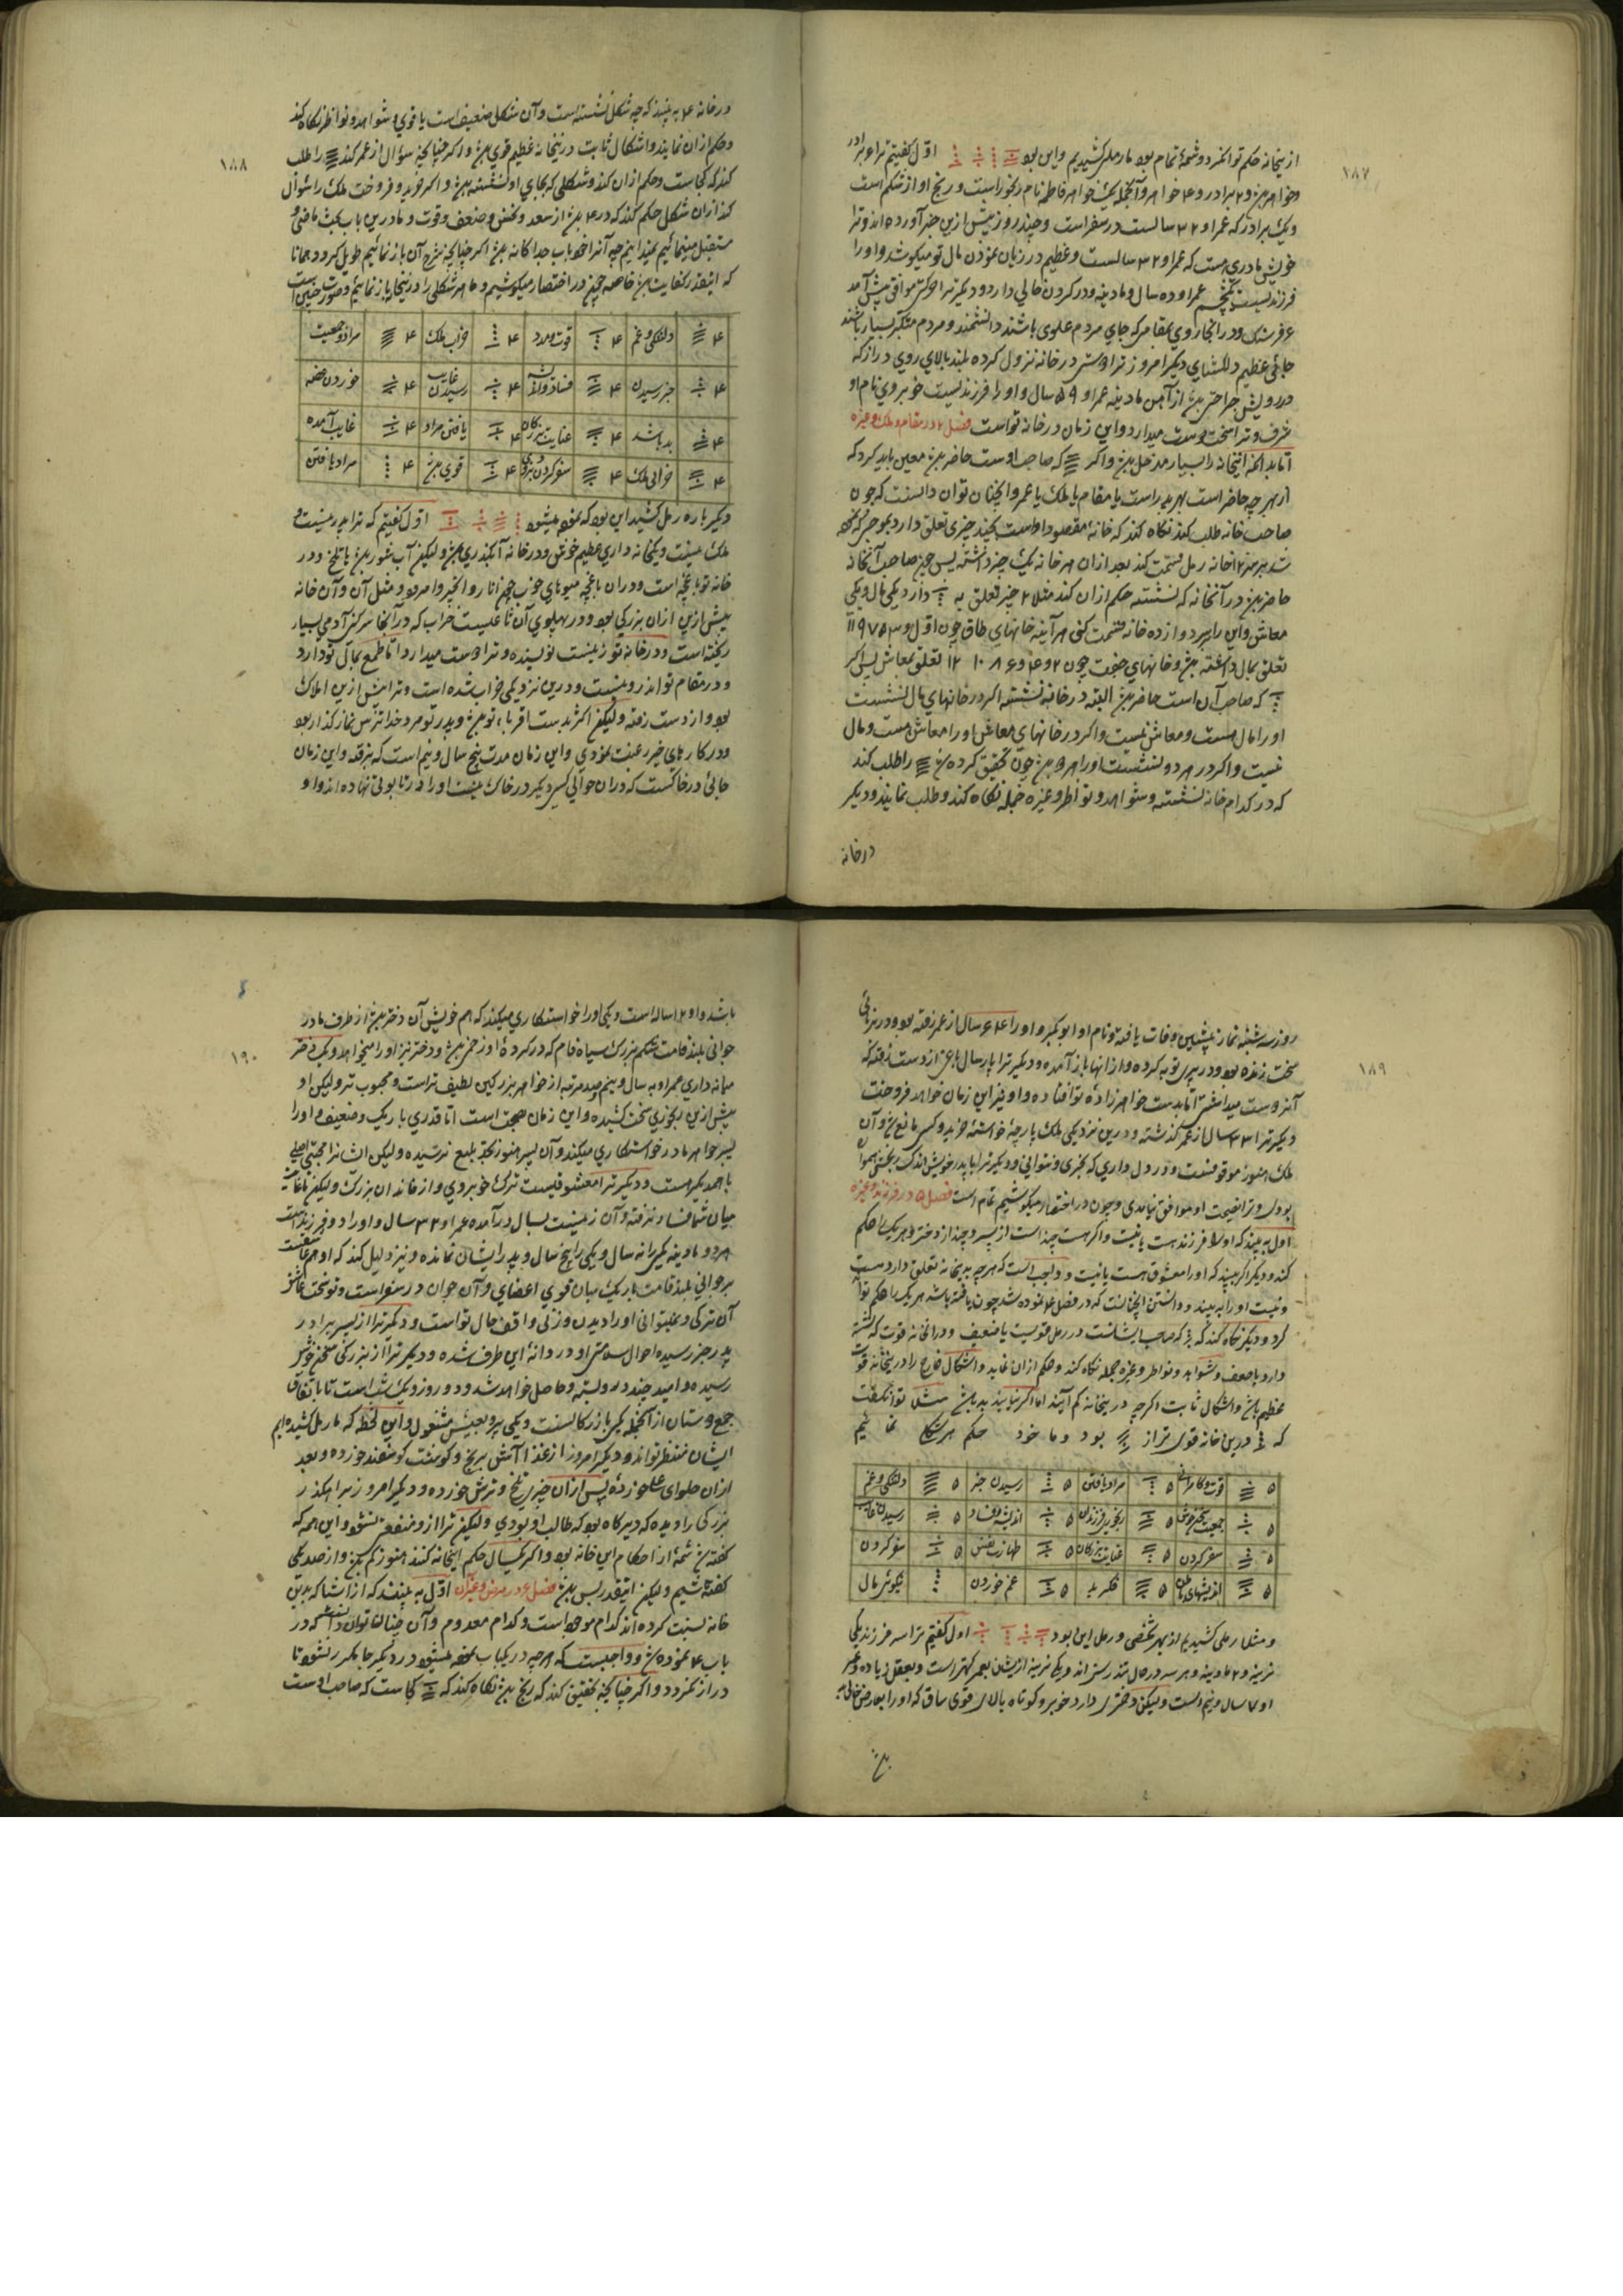 ۱۸۷
از نیخانه حکم توانکرد و شمهٔ تمام بود ما رمل کشیدیم و این بود اوّل گفتیم ترا
و خواهر و برادر و خواهر و آنجمله یک خواهر فاطمه نام رنجور است و رنج او از شکم است
و یک برادر که عمر او ۲۲ سالست در سفر است و چند روز پیش ازین خبر آورده اند و ترا
خویش مادری هست که عمر او ۳۲ سالست و عظیم در زیان نمودن مال تو میکوشد و او را
فرزند عمر او ده سال و مادینه و در کردن خالی دارد و دیگر ترا موافق پیش آمد
۶ فرسنک و در انجا روی بمقامی که جای مردم علوی باشند دانشمند و مردم متکبر بسیار باشند
جائی عظیم دلکشای دیگر امروز ترا در خانه نزول کرده بلند بالای روی دراز که
درویش از آهن مادینه عمر او ۵۹ سال و او را فرزند لیست خوبروی نام او
شرف و ترا سخت دوست میدارد و این زمان در خانه تواست فصل ۴ در مقام و ملک و غیره
اما بدانکه اینخانه را بسیار مدخل و اکر که صاحب اوست حاضر معین باید کرد که
از بهر چه حاضر است بهر پدر است یا مقام یا ملک یا عمر و اینچنان توان دانست که چون
صاحب خانه طلب کند نکاه کند که خانه مقصود اوست کیند چیزی تعلق دارد بموجبی که
شد بر ۱۲ خانه رمل قسمت کند بعد ازان هر خانه یک چیز داشته پس چیز صاحب آنخانه
حاضر در آنخانه که نشسته حکم ازان کند مثلا ۲ چیز تعلق به دارد یکی مال و یکی
معاش و این را بر دوازده خانه قسمت کنی هر آینه خانهای طاق چون اوّل و ۳ ۵ ۷ ۹ ۱۱
تعلق بمال داشته و خانهای جفت چون ۲ و ۴ و ۶ ۸ ۱۰ ۱۲ تعلق بمعاش پس اکر
که صاحب آن است حاضر البته در خانه نشسته اکر در خانهای مال نشست
او را مال هست و معاش نیست و اکر در خانهای معاش او را معاش هست و مال
نیست و اکر در هر دو نشست او را هر دو چون تحقیق کرده را طلب کند
که در کدام خانه نشسته و شواهد و نواظر و غیره جمله نکاه کند و طلب نمایند و دیگر
در خانه
۱۸۸
در خانه ۴ به بیند که چه شکل نشسته است و آن شکل ضعیف است یا قوی و شواهد و نواظر نکاه کند
و حکم ازان نمایند و اشکال ثابت درینخانه عظیم قوی و اکر چنانچه سؤال از عمر کند را طلب
کند که کجاست و حکم ازان کند و شکلی که بجای او نشسته و اکر خرید و فروخت ملک را سؤال
کند ازان شکل حکم کند که در ۴ از سعد و نحس و ضعف و قوت و ما درین باب بحث ماضی و
مستقبل مینمائیم آنرا باب جداکانه اکر چنانچه شرح آن باز نمائیم طویل کردد همانا
که اینقدر کفایت در اختصار میکوشیم و ما هر شکلی را درینجا باز نمائیم و صورت چنین است
۴ دلتنکی و غم ۴ قوت و مدد ۴ خواب ملک ۴ مراد و جمعیت
۴ خبر رسیدن ۴ فساد ۴ غایب رسیدن ۴ خوردن غصه
۴ بد باشد ۴ عنایت بزرکان ۴ یافتن مراد ۴ غایب آمده
۴ خرابی ملک ۴ سفر کردن ۴ قوی ۴ مراد یافتن
دیگر باره رمل کشید این بود که نموده میشود اوّل گفتیم که ترا پدر نیست و
ملک نیست و یکخانه داری عظیم خوش و در خانه آبکذری و لیکن آب شور یا تلخ و در
خانه تو باغچه است و دران باغچه میوهای خوب چون انار و انجیر و امرود و مثل آن و آن خانه
پیش ازین ازان بزرکی بود و در پهلوی آن خراب که در آنجا سرکین آدمی بسیار
ریخته است و در خانه تو زنیست نویسنده و ترا دوست میدارد و اما طمع بمال تو دارد
و در مقام تو اندرونیست و درین نزدیکی خراب شده است و ترا پیش ازین املاک
بود و از دست رفته و لیکن اکثر بدست اقرباء تو و پدر تو مرد خدا ترس نماز کذار بود
و در کارهای خیر رغبت نمودی و این زمان مدت پنج سال و نیم است که برفته و این زمان
جائی در خاکست که دران حوالی کس دیگر در خاک نیست او را در تابوتی نهاده اند و او
۱۸۹
روز سه شنبه نماز پیشین وفات یافته و نام او ابوبکر و او را ۶۴ سال از عمر رفته بود و در برنائی
سخت رنده بود و در پیری توبه کرده و از انها باز آمده و دیگر ترا پارسال باغی از دست رفته که
آنرا دوست میداشتی اما بدست خواهر زادهٔ تو افتاده و او نیز این زمان خواهد فروخت
دیگر ترا ۴۳ سال از عمر گذشته و درین نزدیکی ملک پارچهٔ خواستهٔ خرید و کس مانع و آن
ملک هنوز موقوفست و در دل داری که بخری و نتوانی و دیگر ترا با پدر خویش اندک رنجشی
بودی و ترا نصیحت او موافق نیامدی و چون در اختصار میکوشیم تمام است فصل ۵ در فرزند و غیره
اول به بیند که او را فرزند هست یا نیست و اکر هست چند است از پسر و چند از دختر و هر یک را حکم
کند و دیگر اکر بیند که او را معشوق هست یا نیست و واجب است که هر چه بدینخانه تعلق دارد هست
و نیست او را به بیند و دانستن اینچنانست که در فصل ۴ نموده شد چون یافته باشد هر یک را حکم توان
کرد و دیگر نکاه کند که که صاحب ایشانست در رمل قویست یا ضعیف و در انخانه قوت که نشسته
دارد یا ضعف و شواهد و نواظر و غیره جمله نکاه کند و حکم ازان نماید و اشکال خارج را درینخانه قوت
عظیم باشد و اشکال ثابت اکر چه درینخانه کم آیند اما اکر بیایند بد باشد مثلا توان گفت
که درین خانه قوی تر از بود و ما خود حکم هر شکل نمائیم
۵ قوت و کامرانی ۵ مراد یافتن ۵ رسیدن خبر ۵ دلتنکی و غم
۵ جمعیت ۵ رنجوری فرزندان ۵ اندیشه فساد ۵ رسیدن غایب
۵ سفر کردن ۵ عنایت بزرکان ۵ طهارت نفس ۵ سفر کردن
۵ اندیشهای باطل ۵ فکر بد ۵ غم خوردن نیکوئی مال
و مثلا رملی کشیدیم از بهر شخصی و رمل این بود اول گفتیم ترا سه فرزند یکی
نرینه و ۲ مادینه و هر سه در حال تندرستی اند و یکی نرینه ازیشان بعمر کهتر است و بعقل زیاده و عمر
او ۷ سال و نیم است و لیکن دختری دارد خوبرو کوتاه بالای قوی ساق که او را
۱۹۰
باشد و او ۱۲ ساله است و یکی او را خواستکاری میکند که هم خویش آن دختر از طرف مادر
جوانی بلند قامت شکم بزرک سیاه فام که در کردهٔ او زخمی و دختر نیز او را میخواهد و یک دختر
میانه داری عمر او به سال و پنج صد مرتبه از خواهر بزرکین لطیف تر است و محبوب تر و لیکن او
پیش ازین رنجوری سخت کشیده و این زمان صحت است اما قدری باریک و ضعیف و او را
پسر خواهر مادر خواستکاری میکند و آن پسر هنوز بحد بلیغ نرسیده و لیکن ایشانرا محبتی اصلی
با همدیگر هست و دیگر ترا معشوقیست ترک خوبروی و از خاندان بزرک و لیکن تا غایت
میان شما فساد نرفته و آن زنیست بسال در آمده عمر او ۳۲ سال و او را دو فرزند است
هر دو مادینه یکیرا نه سال و یکی را پنج سال و پدر ایشان نمانده و نیز دلیل کند که او هم عاشقست
بر جوانی بلند قامت باریک میان قوی اعضای و آن جوان در سفر است و تو سخت عاشق
آن ترکی و نمیتوانی او را دیدن و زنی واقف حال تو است و دیگر ترا از پسر برادر
پدر خبر رسیده احوال سلامتی او در روانه این طرف شده و دیگر ترا از بزرکی سخن خوش
رسیده و امید چند در و بسته و حاصل خواهد شد و دو روز و یک شب است تا باتفاق
جمع دوستان از آنجمله یکی بازرکانست و یکی پیر و بعیش مشغول و این لحظه که ما رمل کشیده ایم
ایشان منتظر تو اند و دیگر امروز از غذا آتش برنج و کوشت کوسفند خورده و بعد
ازان حلوای عسل خوردهٔ پس ازان چیزی تلخ و ترش خورده و دیگر امروز بر رهگذر
بزرکی را دیده که دیرکاه بود که طالب او بودی و لیکن ترا ازو منفعتی نشود و این همه که
کفته شمهٔ از احکام این خانه بود و اکر یکسال حکم اینخانه کنند هنوز کم و از صد یکی
کفته باشیم و لیکن اینقدر بس فصل ۶ در مرض و غیران اوّل به بینند که از اشیا که بدین
خانه نسبت کرده اند کدام موجود است و کدام معدوم و آن چنان توان دانست که در
باب ۴ نموده و واجبست که هر چه در یکباب نموده میشود در دیگر جا مکرر نشود تا
دراز نکردد و اکر چنانچه تحقیق کند که رنج نکاه کند که کجاست که صاحب اوست